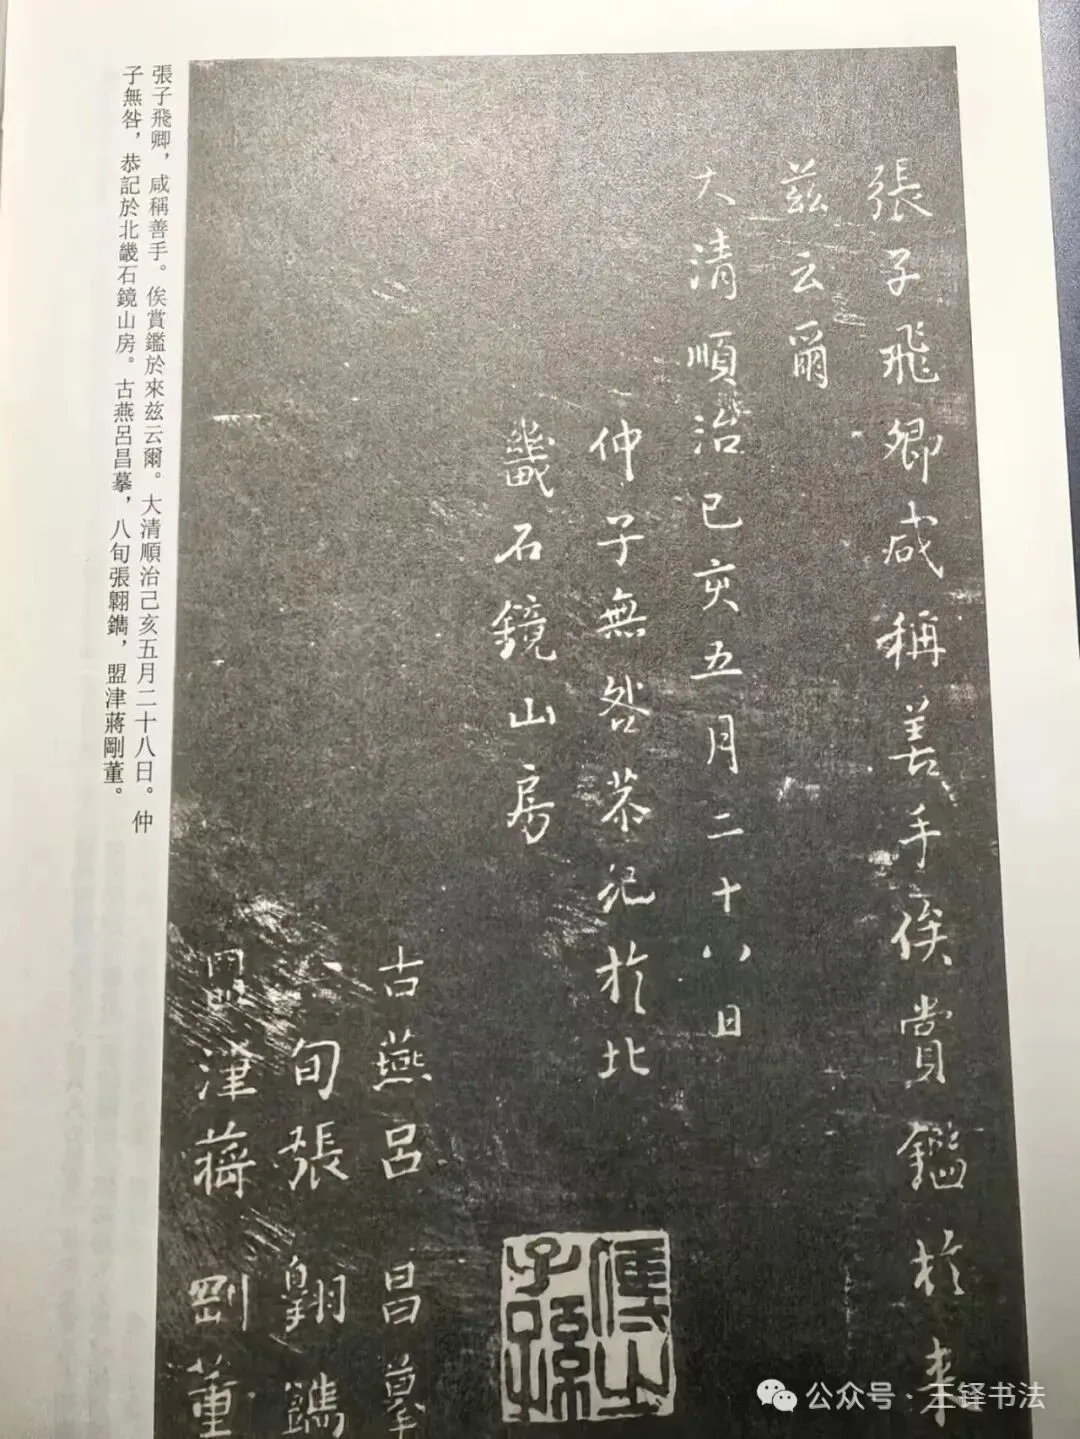 張子飛卿咸稱善手俟賞鑑於来
茲云爾
大清順治己亥五月二十八日
仲子無咎恭記於北
畿石鏡山房
古燕呂昌摹
八旬張翱鐫
盟津蔣劉董
張子飛卿，咸稱善手。俟賞鑑於來兹云爾。大清順治己亥五月二十八日。仲
子無咎，恭記於北畿石鏡山房。古燕呂昌摹，八旬張翱鐫，盟津蔣剛董。
公众号·王铎书法